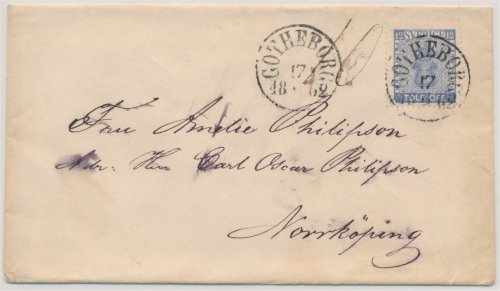 GOTHEBORG
17
4
18 62
12 SVERIGE 12
TOLF ÖRE
GOTHEBORG
17
Fru Amelie Philipson
Adr: Herr Carl Oscar Philipson
Norrköping